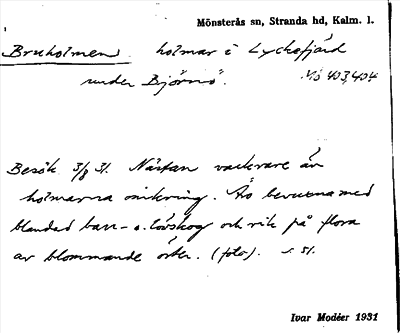 Mönsterås sn, Stranda hd, Kalm. l.
Bruholmen holmar i Lyckefjärd
under Björnö. Mö 403,404
Besök 3/8 31. Nästan vackrare än
holmarna omkring. Äro bevuxna med
blandad barr- o. lövskog och rik på flora
av blommande örter. (foto). s. 51.
Ivar Modéer 1931